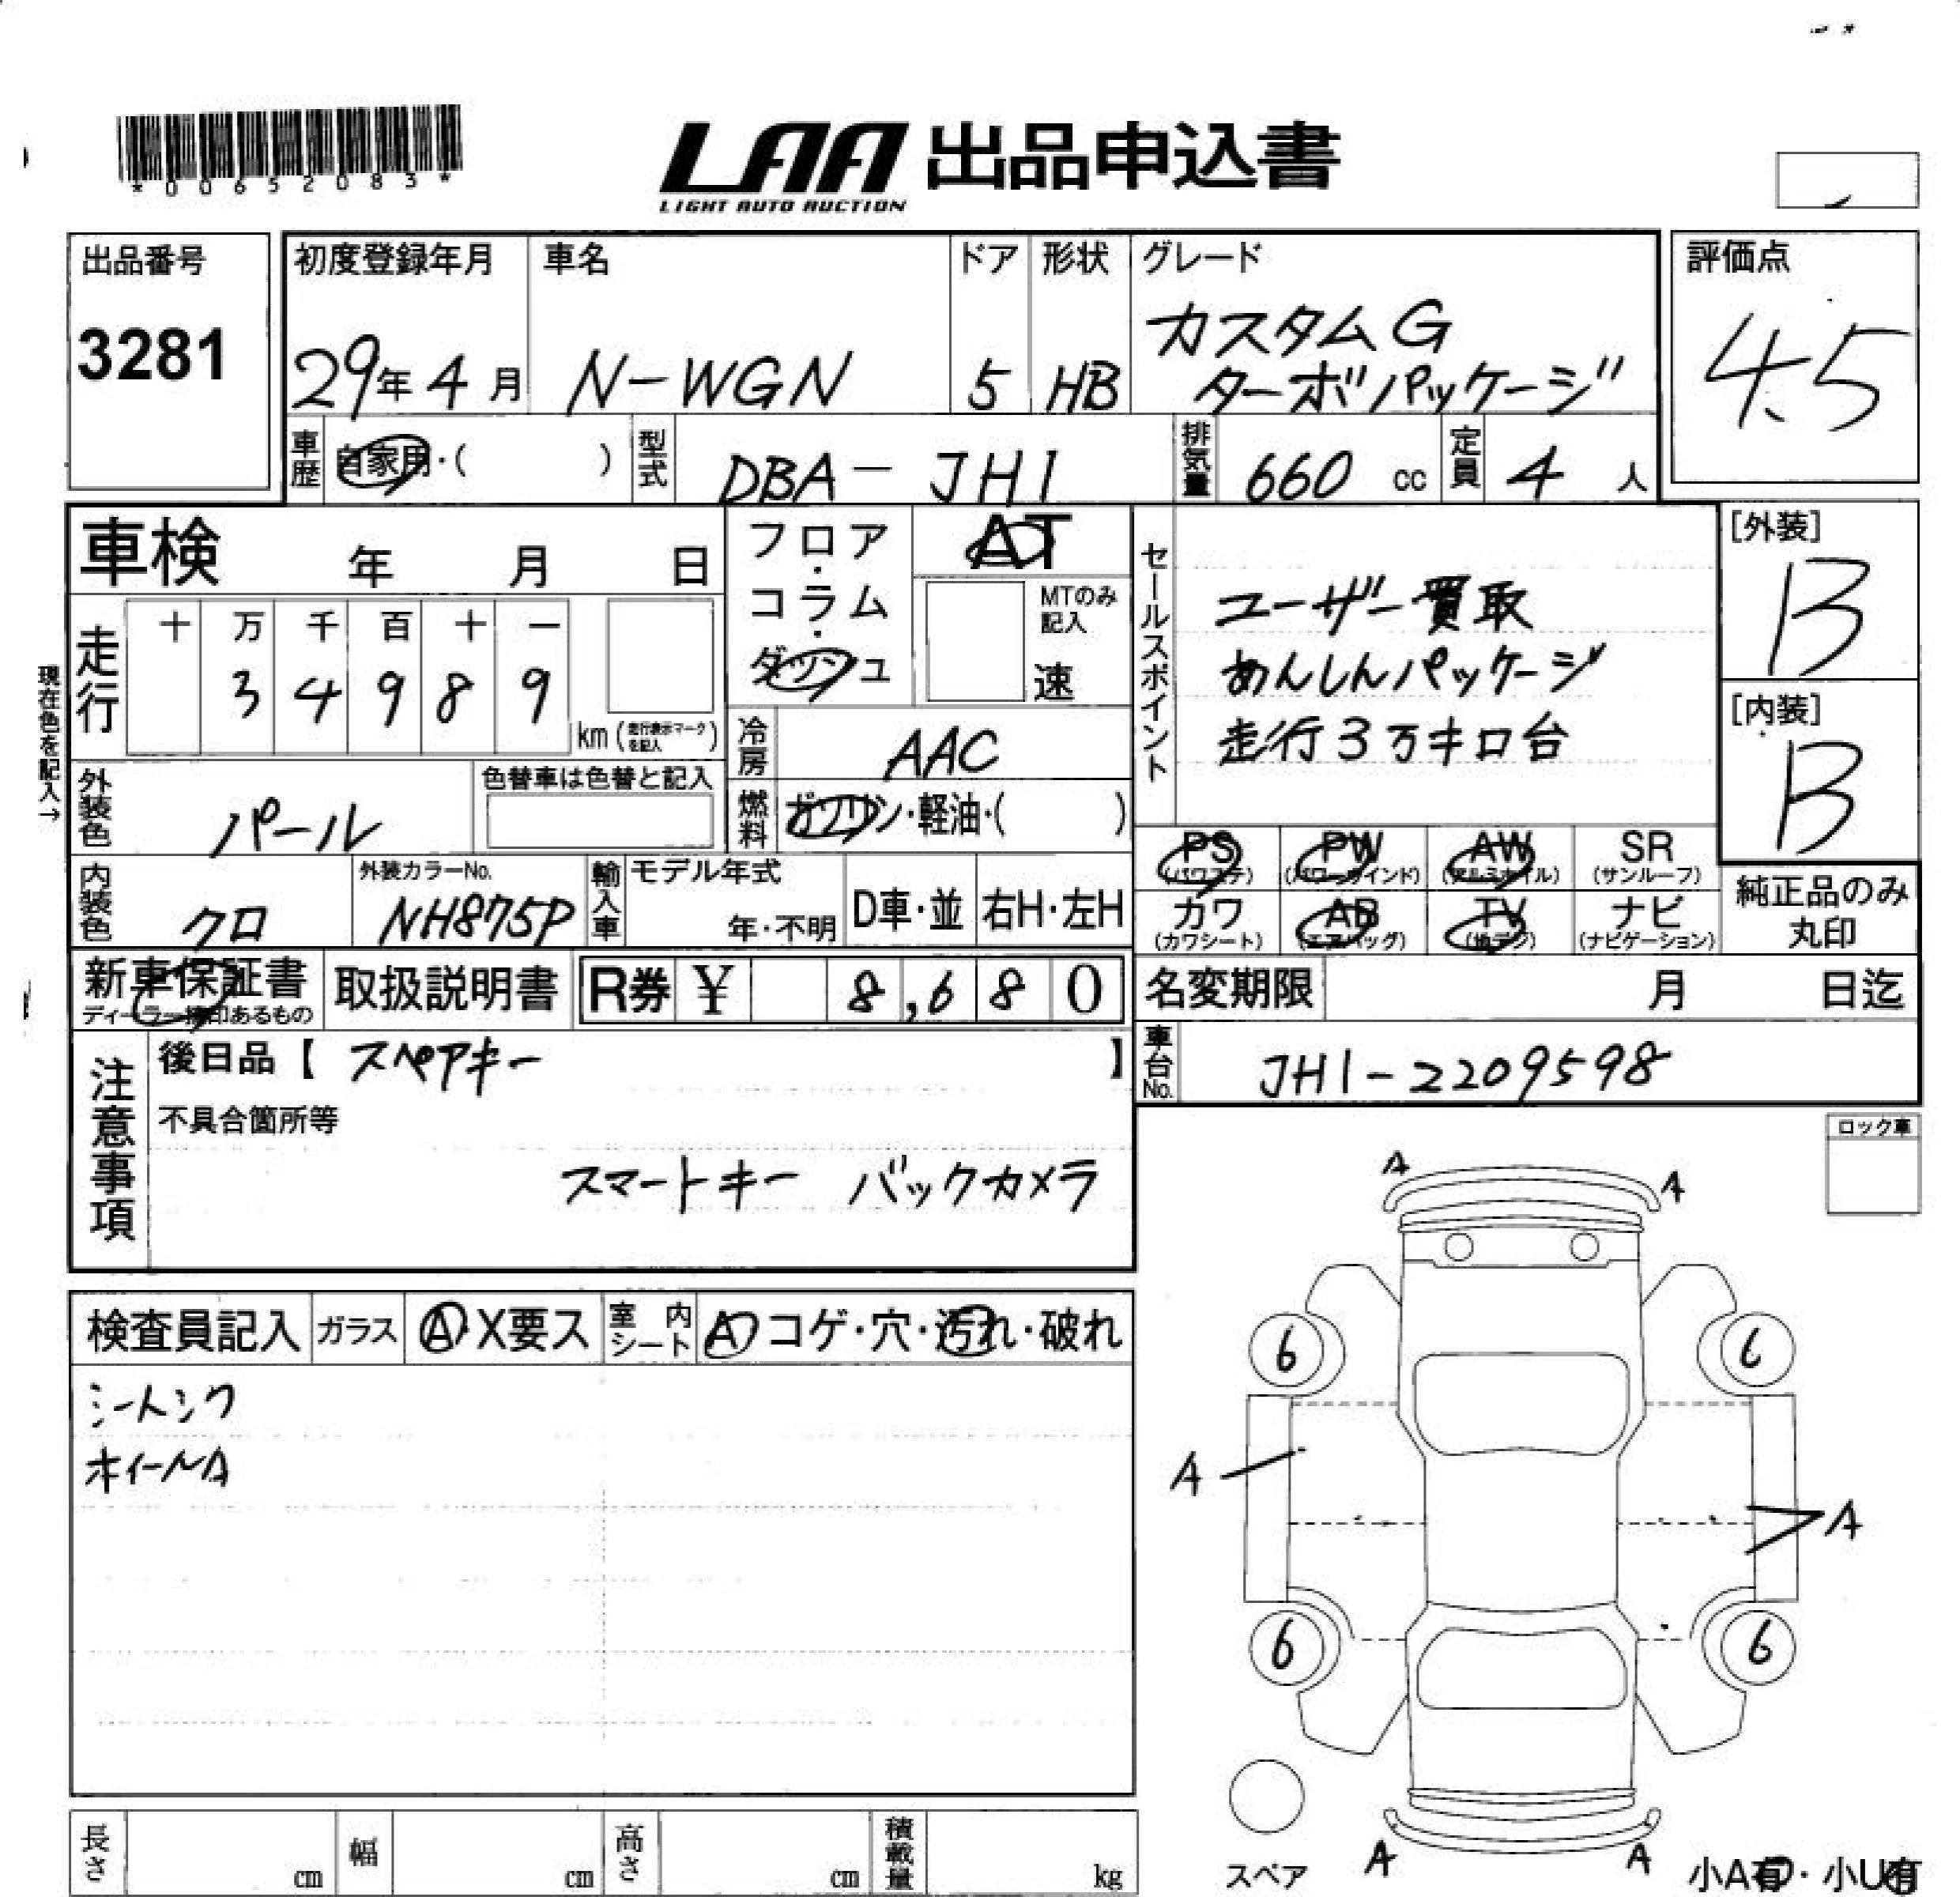 *00652083*
LAA 出品申込書
LIGHT AUTO AUCTION
出品番号
3281
初度登録年月
29年4月
車名
N-WGN
ドア
5
形状
HB
グレード
カスタムG
ターボパッケージ
評価点
4.5
車歴
自家用・( )
型式
DBA-JH1
排気量
660 cc
定員
4 人
車検 年 月 日
フロア・コラム・ダッシュ
AT
MTのみ記入
速
セールスポイント
ユーザー買取
あんしんパッケージ
走行3万キロ台
[外装]
B
[内装]
B
現在色を記入→
走行
十 万 千 百 十 一
3 4 9 8 9
km(走行表示マークを記入)
冷房
AAC
外装色
パール
色替車は色替と記入
燃料
ガソリン・軽油・( )
PS (パワステ)
PW (パワーウインド)
AW (アルミホイル)
SR (サンルーフ)
カワ (カワシート)
AB (エアバッグ)
TV (地デジ)
ナビ (ナビゲーション)
純正品のみ丸印
内装色
クロ
外装カラーNo.
NH875P
輸入車
モデル年式
年・不明
D車・並
右H・左H
新車保証書
ディーラー捺印あるもの
取扱説明書
R券 ¥ 8,680
名変期限 月 日迄
車台No.
JH1-2209598
注意事項
後日品【 スペアキー 】
不具合箇所等
スマートキー バックカメラ
ロック車
検査員記入
ガラス
A・X要ス
室内シート
A・コゲ・穴・汚れ・破れ
シートシワ
ホイールA
A A
6 6
A
A
6 6
A A
スペア
小A有・小U有
長さ cm
幅 cm
高さ cm
積載量 kg